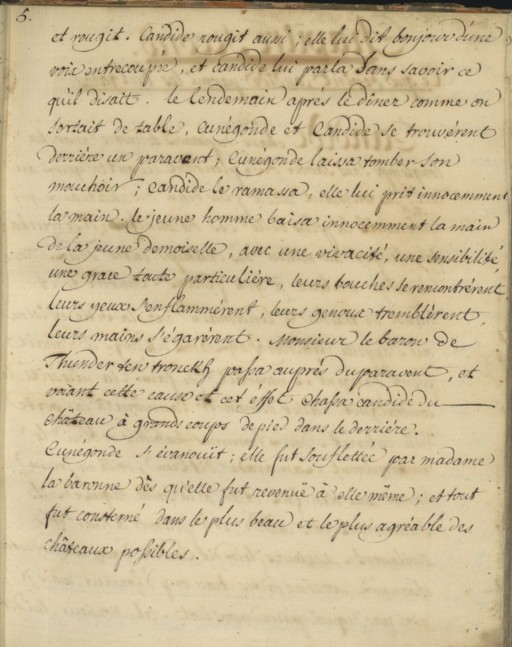 5.
et rougit. Candide rougit aussi ; elle lui dit bonjour d'une
voix entrecoupée, et Candide lui parla sans savoir ce
qu'il disait. le lendemain aprés le dîner comme on
sortait de table, Cunégonde et Candide se trouvérent
derrière un paravent ; Cunégonde laissa tomber son
mouchoir ; Candide le ramassa, elle lui prit innocemment
la main. le jeune homme baisa innocemment la main
de la jeune demoiselle, avec une vivacité, une sensibilité,
une grace toute particuliére, leurs bouches se rencontrérent,
leurs yeux s'enflammérent, leurs genoux tremblèrent,
leurs mains s'égarérent. Monsieur le baron de
Thunder ten tronckh passa auprés du paravent, et
voiant cette cause et cet éffet chassa candide du
château à grands coups de pied dans le derrière.
Cunégonde s'évanouït ; elle fut souflettée par madame
la baronne dès qu'elle fut revenuë à elle même ; et tout
fut consterné dans le plus beau et le plus agréable des
châteaux possibles.